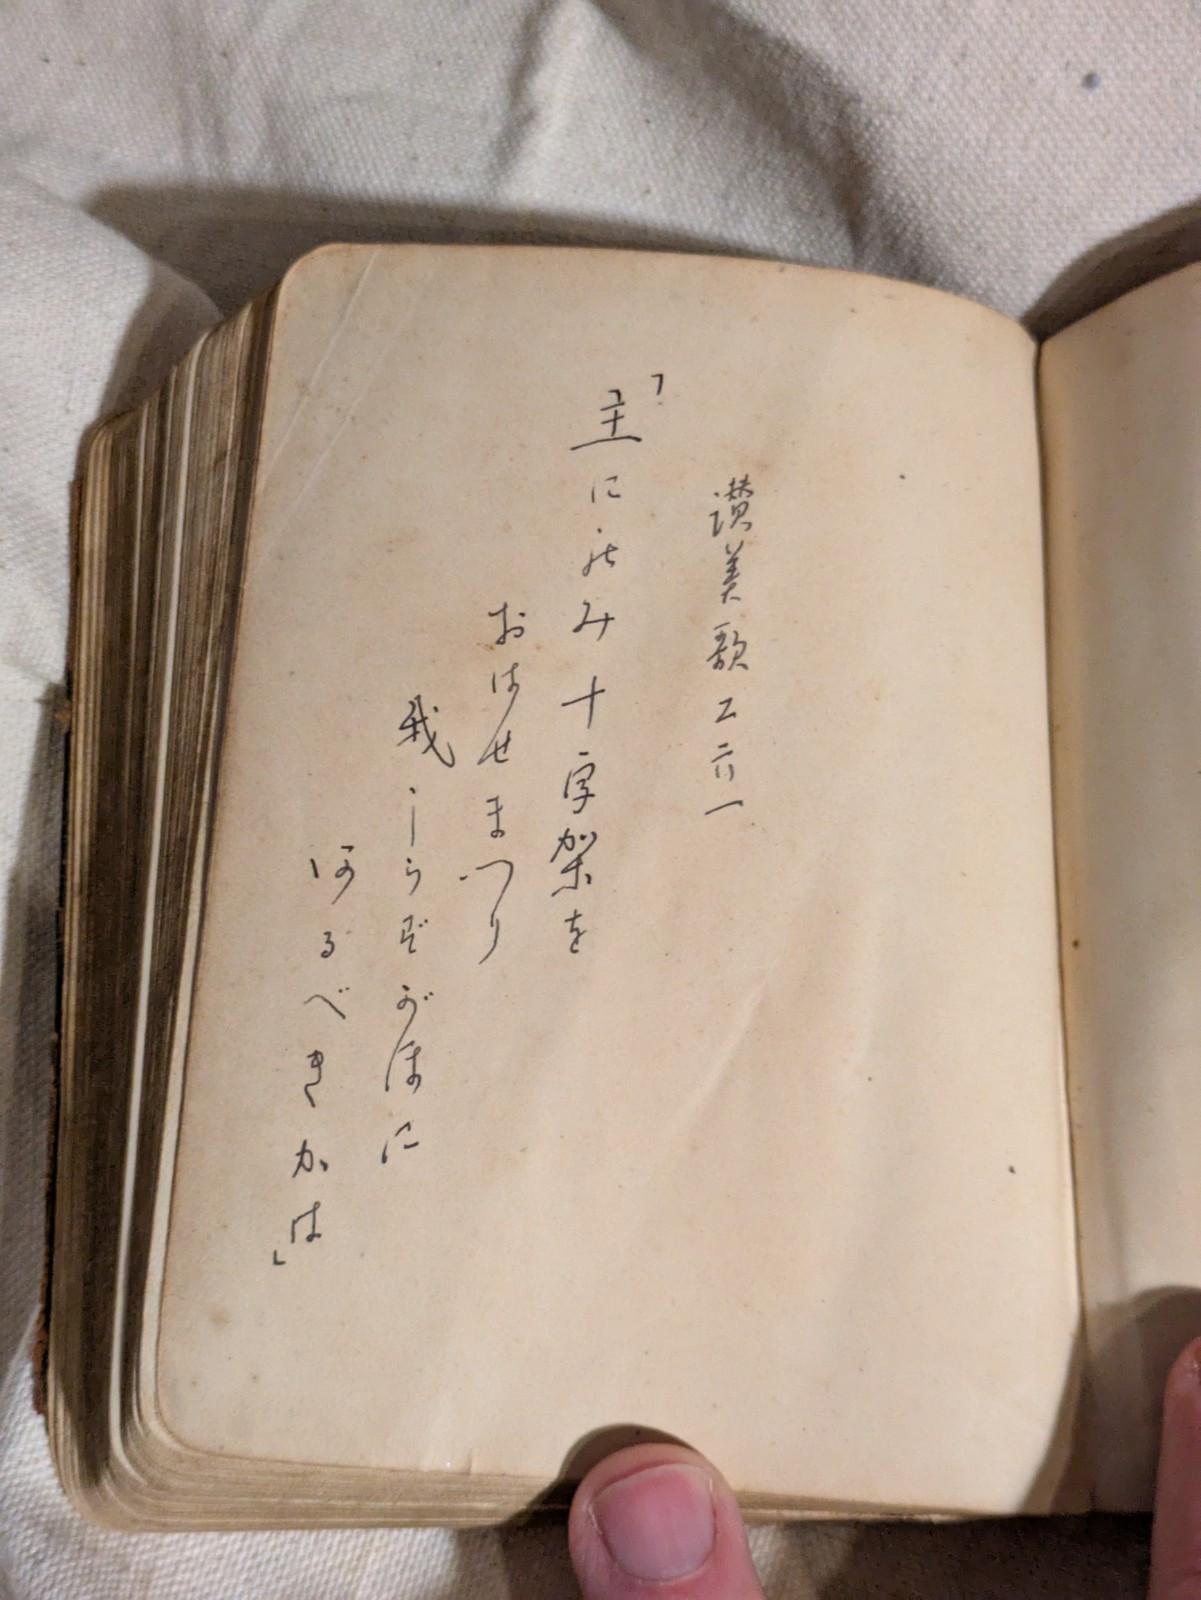 讃美歌二六一
「主にのみ十字架を
おはせまつり
我しらずがほに
あるべきかは」